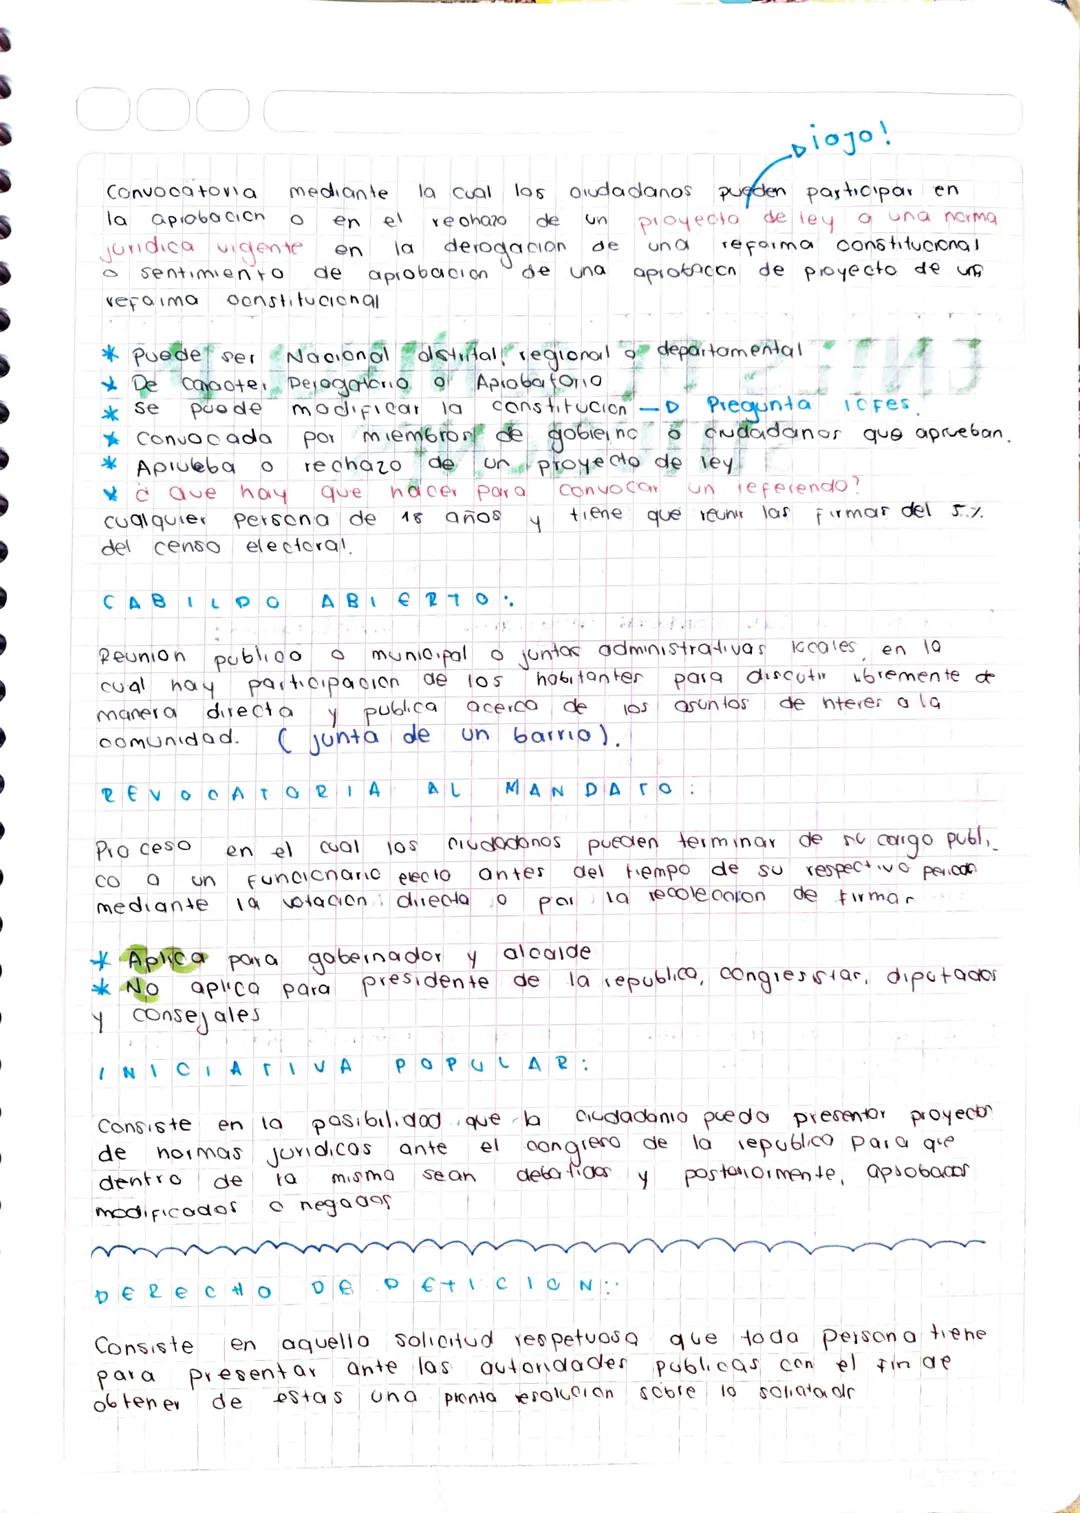 ¡ojo!
Convocatoria mediante la cual los ciudadanos pueden participar en
la aprobacion o en el rechazo de un proyecto de ley o una norma
juridica vigente en la derogacion de una reforma constitucional
o sentimiento de aprobacion de una aprobacen de proyecto de una
reforma constitucional
* Puede ser Nacional distrital, regional o departamental
* De caracter Derogatorio o Aprobatorio
* Se puede modificar la constitucion → Pregunta icfes.
* Convocada por miembros de gobierno o ciudadanos que aprueban.
* Aprueba o rechazo de un proyecto de ley
* ¿ Que hay que hacer para convocar un referendo?
cualquier persona de 18 años y tiene que reunir las firmas del 5%
del censo electoral.
CABILDO ABIERTO:
Reunion publico o municipal o juntas administrativas locales, en la
cual hay participacion de los habitantes para discutir libremente de
manera directa y publica acerca de los asuntos de nteres a la
comunidad. (junta de un barrio).
REVOCATORIA AL MANDATO:
Proceso en el cual los ciudadanos pueden terminar de su cargo publi_
co a un funcionario electo antes del tiempo de su respectivo periodo
mediante la votacion directa o por la recoleccion de firmas
* Aplica para gobernador y alcalde
* No aplica para presidente de la republica, congresistas, diputados
y consejales
INICIATIVA POPULAR:
Consiste en la posibilidad que la ciudadania pueda presentar proyectos
de normas juridicas ante el congreso de la republica para que
dentro de la misma sean debatidos y posteriormente, aprobados
modificados o negados
DERECHO DE PETICION:
Consiste en aquella solicitud respetuosa que toda persona tiene
para presentar ante las autoridades publicas con el fin de
obtener de estas una pronta resolucion sobre lo solicitado